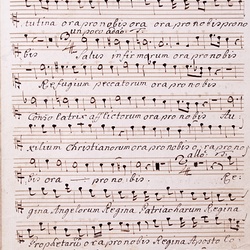 tutina ora pro nobis ora ora pro nobis ora pro no
un poco adao
bis Salus infirmorum ora pro nobis
Refugium peccatorum ora pro nobis
Consolatrix aflictorum ora pro nobis Au:
xilium Christianorum ora pro nobis ora pro no
allo
bis ora pro no bis. Re:
gina Angelorum Regina Patriarcharum Regina
Prophetarū ora pro nobis Regina Aposto